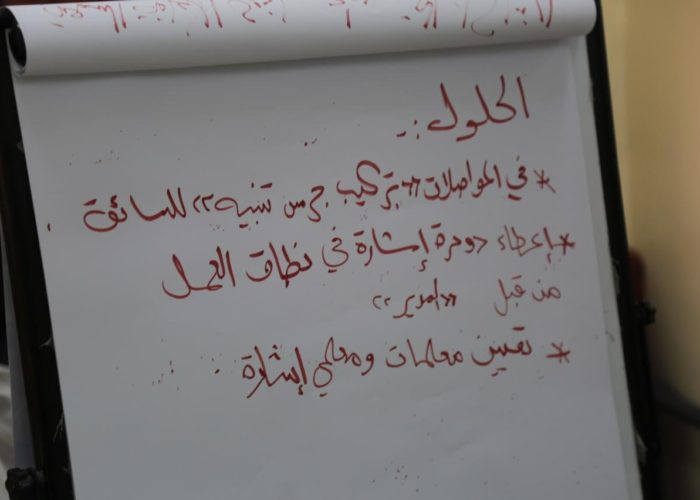 الحلول :-
* في المواصلات "تركيب جرس تنبيه" للسائق.
* إعطاء دورة إشارة في نطاق العمل
من قبل "المدير"
* تعيين معلمات ومعلمي إشارة